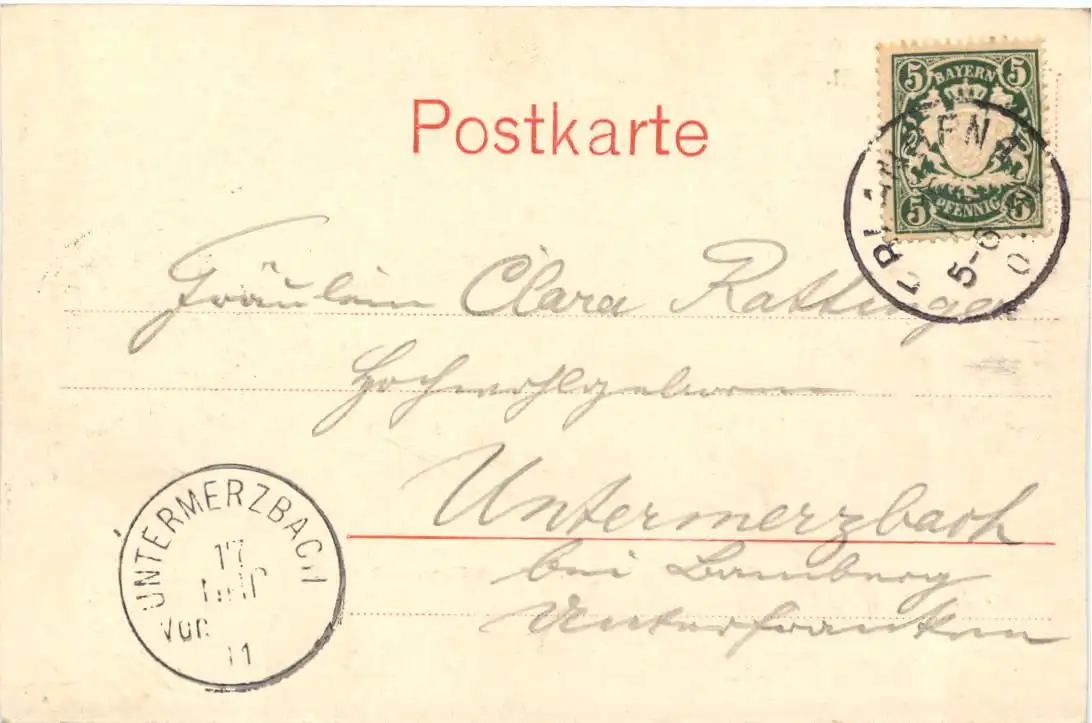 Postkarte
5 BAYERN 5
5 PFENNIG 5
ERLANGEN 1
5-6
Fräulein Clara Rattinger
Hochwohlgeboren
Untermerzbach
bei Bamberg
Unterfranken
UNTERMERZBACH
17
Vor
11